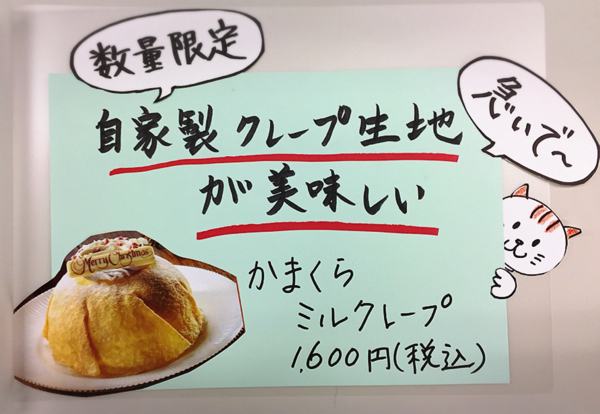 数量限定
急いで〜
自家製クレープ生地
が美味しい
Merry Christmas
かまくら
ミルクレープ
1,600円(税込)